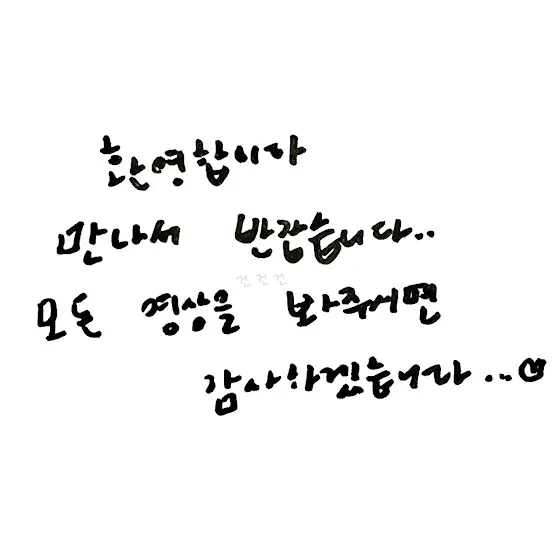 환영합니다
만나서 반갑습니다..
건건건
모든 영상을 봐주시면
감사하겠습니다...♡